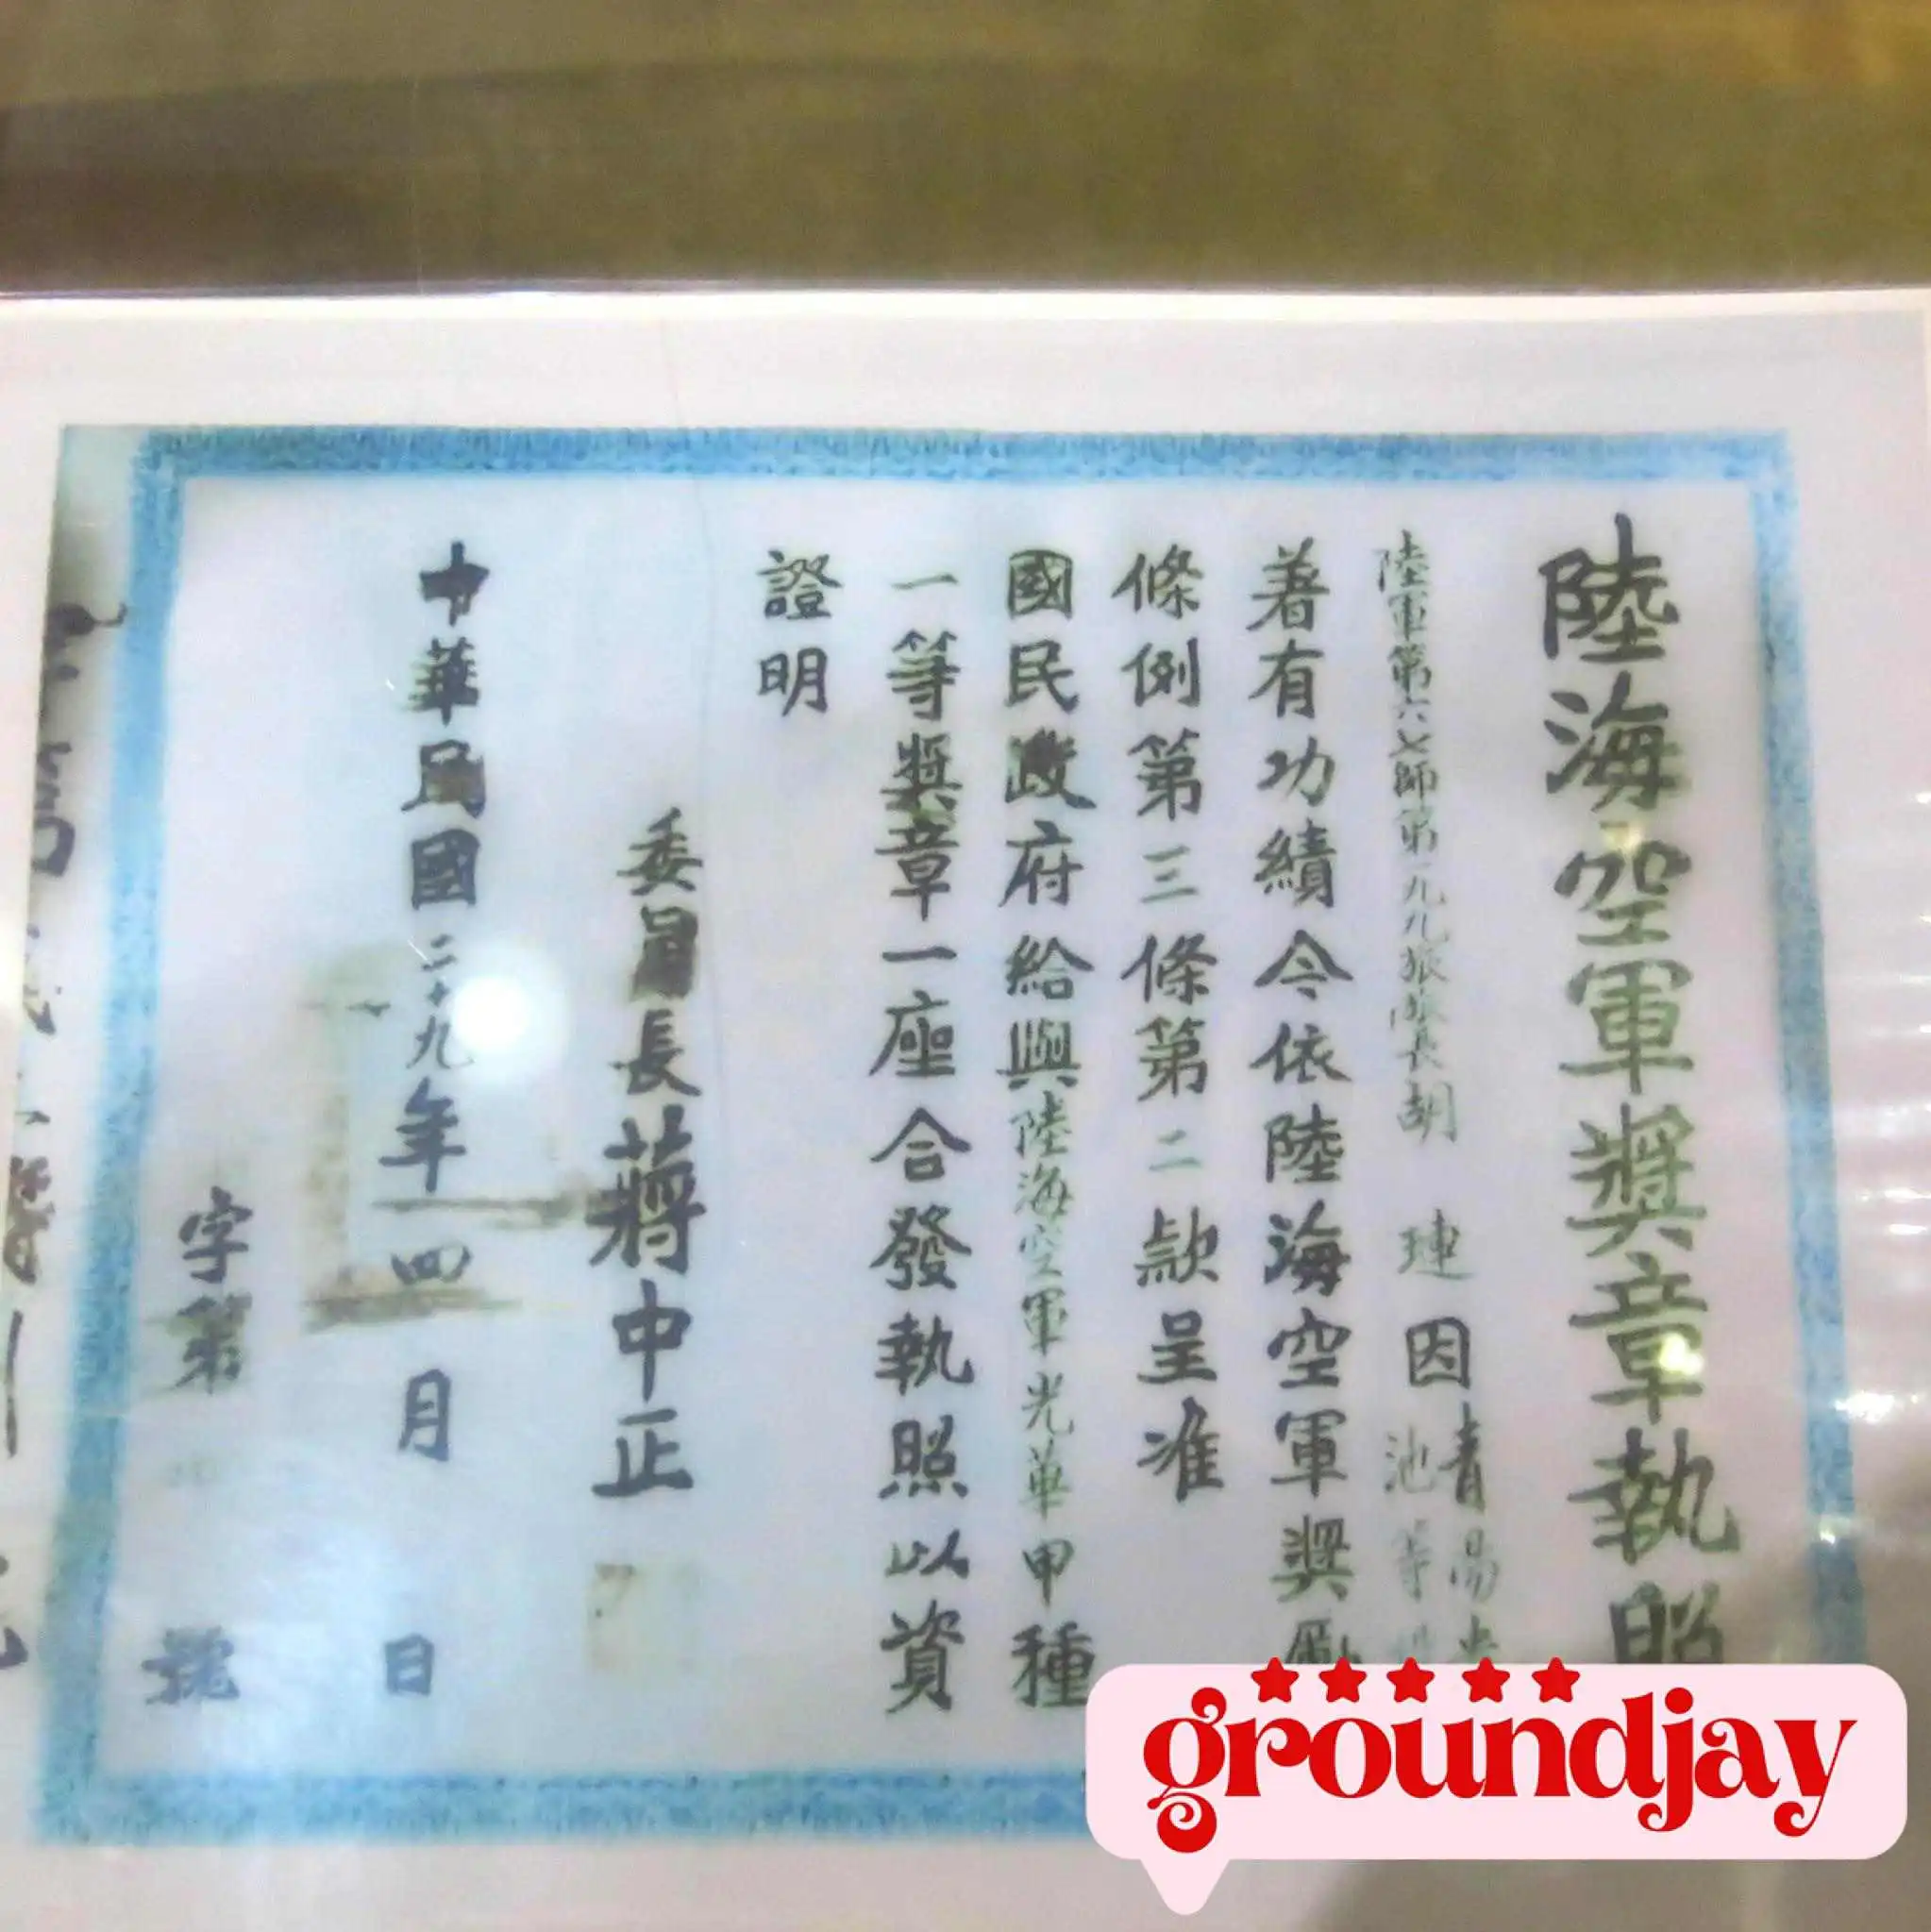 陸海空軍獎章執照
陸軍第六七師第一九九旅旅長胡 璉因青陽
池等
著有功績令依陸海空軍獎勵
條例第三條第二款呈准
國民政府給與陸海空軍光華甲種
一等獎章一座合發執照以資
證明
委員長蔣中正
中華民國二十九年四月 日
字第 號
groundjay